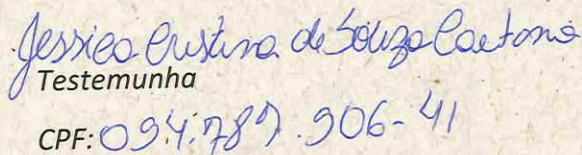 Jessica Cristina de Souza Caetano
Testemunha
CPF: 094.789.906-41